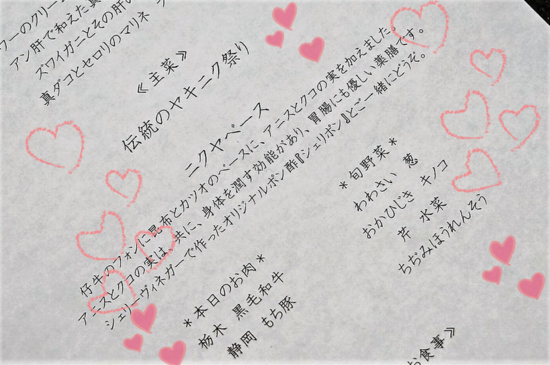 ワーのクリー
アン肝で和えた真
ズワイガニとその肝の
真ダコとセロリのマリネ
《主菜》
伝統のヤキニク祭り
ニクヤベース
仔牛のフォンに昆布とカツオのベースに、アニスとクコの実を加えました
アニスとクコの実は、共に、身体を潤す効能があり、胃腸にも優しい薬膳です。
シェリーヴィネガーで作ったオリジナルポン酢『シェリポン』とご一緒にどうぞ。
*旬野菜*
わわさい 葱
おかひじき キノコ
芹 水菜
ちぢみほうれんそう
*本日のお肉*
栃木 黒毛和牛
静岡 もち豚
お食事》